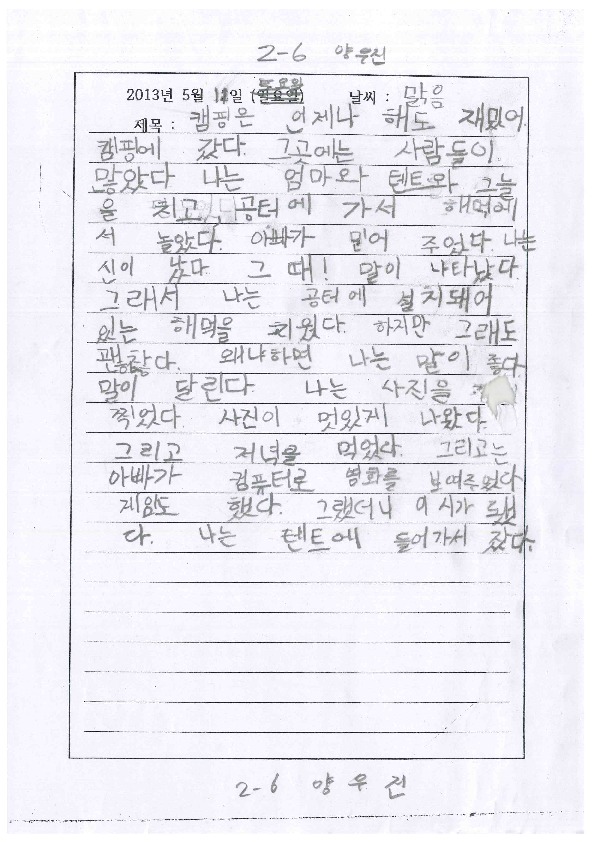 2-6 양우진
2013년 5월 11일 (토요일) 날씨 : 맑음
제목 : 캠핑은 언제나 해도 재밌어
캠핑에 갔다. 그곳에는 사람들이
많았다 나는 엄마와 텐트와 그늘
을 치고 공터에 가서 해먹에
서 놀았다. 아빠가 밀어 주었다. 나는
신이 났다. 그 때! 말이 나타났다.
그래서 나는 공터에 설치돼어
있는 해먹을 치웠다. 하지만 그래도
괜찮다. 왜냐하면 나는 말이 좋다.
말이 달린다. 나는 사진을
찍었다. 사진이 멋있게 나왔다.
그리고 저녁을 먹었다. 그리고는
아빠가 컴퓨터로 영화를 보여주었다
게임도 했다. 그랬더니 시가 됬
다. 나는 텐트에 들어가서 잤다.
2-6 양우진